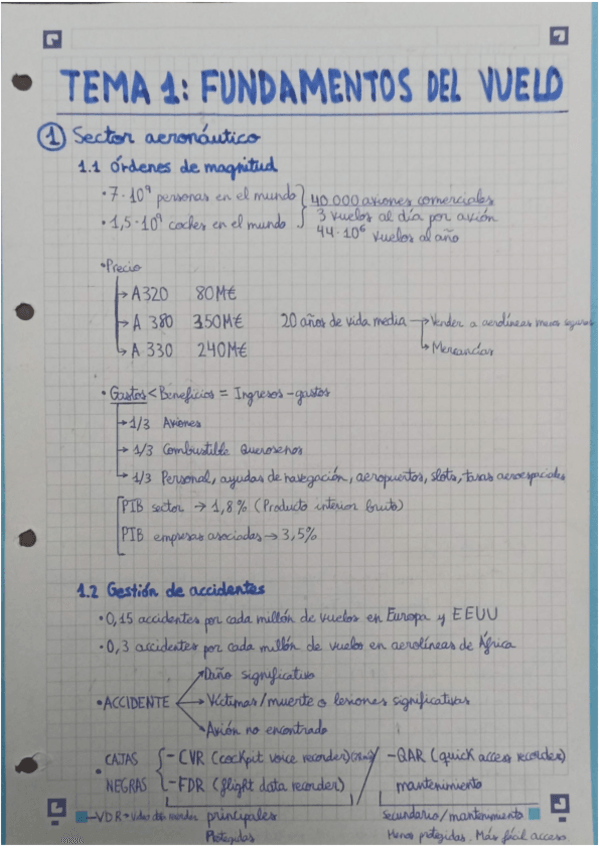 TEMA 1: FUNDAMENTOS DEL VUELO
1 Sector aeronáutico
1.1 Órdenes de magnitud
• 7·10⁹ personas en el mundo
• 1,5·10⁹ coches en el mundo
40.000 aviones comerciales
3 vuelos al día por avión
44·10⁶ vuelos al año
• Precio
→ A320 80M€
→ A 380 350M€ 20 años de vida media → Vender a aerolíneas menos seguras
→ A 330 240M€ → Mercancías
• Gastos < Beneficios = Ingresos - gastos
→ 1/3 Aviones
→ 1/3 Combustible Querosenos
→ 1/3 Personal, ayudas de navegación, aeropuertos, slots, tasas aeroespaciales
PIB sector → 1,8% (Producto interior bruto)
PIB empresas asociadas → 3,5%
1.2 Gestión de accidentes
• 0,15 accidentes por cada millón de vuelos en Europa y EEUU
• 0,3 accidentes por cada millón de vuelos en aerolíneas de África
→ Daño significativo
• ACCIDENTE → Víctimas/muerte o lesiones significativas
→ Avión no encontrado
• CAJAS NEGRAS
- CVR (cockpit voice recorder)
- FDR (flight data recorder)
- QAR (quick access recorder)
mantenimiento
- VDR → principales
Protegidas
Secundario/mantenimiento
Menos protegidas. Más fácil acceso.